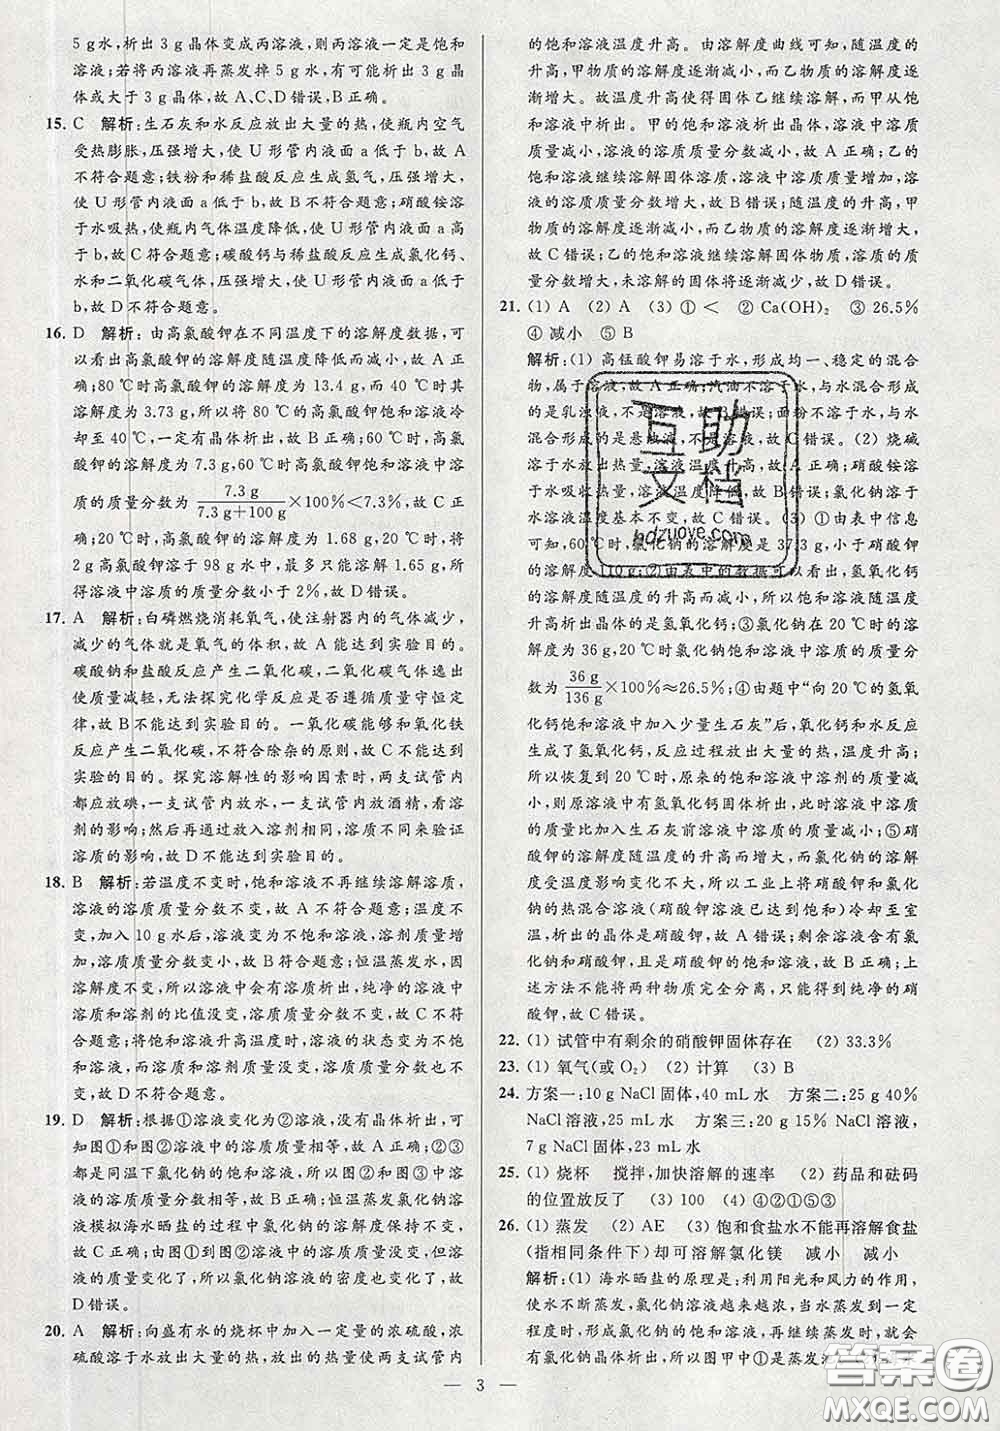 5 g水,析出3 g晶体变成丙溶液,则丙溶液一定是饱和
溶液;若将丙溶液再蒸发掉5 g水,有可能析出3 g晶
体或大于3 g晶体,故A、C、D错误,B正确。
15. C 解析:生石灰和水反应放出大量的热,使瓶内空气
受热膨胀,压强增大,使U形管内液面a低于b,故A
不符合题意;铁粉和稀盐酸反应生成氢气,压强增大,
使U形管内液面a低于b,故B不符合题意;硝酸铵溶
于水吸热,使瓶内气体温度降低,使U形管内液面a高
于b,故C符合题意;碳酸钙与稀盐酸反应生成氯化钙、
水和二氧化碳气体,压强增大,使U形管内液面a低于
b,故D不符合题意。
16. D 解析:由高氯酸钾在不同温度下的溶解度数据,可
以看出高氯酸钾的溶解度随温度降低而减小,故A正
确;80 ℃时高氯酸钾的溶解度为13.4 g,而40 ℃时其
溶解度为3.73 g,所以将80 ℃的高氯酸钾饱和溶液冷
却至40 ℃,一定有晶体析出,故B正确;60 ℃时,高氯
酸钾的溶解度为7.3 g,60 ℃高氯酸钾饱和溶液中溶
质的质量分数为7.3 g/(7.3 g+100 g)×100%<7.3%,故C正
确;20 ℃时,高氯酸钾的溶解度为1.68 g,20 ℃时,将
2 g高氯酸钾溶于98 g水中,最多只能溶解1.65 g,所
得溶液中溶质的质量分数小于2%,故D错误。
17. A 解析:白磷燃烧消耗氧气,使注射器内的气体减少,
减少的气体就是氧气的体积,故A能达到实验目的。
碳酸钠和盐酸反应产生二氧化碳,二氧化碳气体逸出
使质量减轻,无法探究化学反应是否遵循质量守恒定
律,故B不能达到实验目的。一氧化碳能够和氧化铁
反应产生二氧化碳,不符合除杂的原则,故C不能达到
实验的目的。探究溶解性的影响因素时,两支试管内
都应放碘,一支试管内放水,一支试管内放酒精,看溶
剂的影响;然后再通过溶剂相同,溶质不同来验证
溶质的影响,故D不能达到实验目的。
18. B 解析:若温度不变时,饱和溶液不再继续溶解溶质,
溶液的溶质质量分数不变,故A不符合题意;温度不
变,加入10 g水后,溶液变为不饱和溶液,溶剂质量增
加,溶质质量分数变小,故B符合题意;恒温蒸发水,因
溶解度不变,所以溶液中会有溶质析出,纯净的溶液中
溶质和溶剂的比值没变,溶质质量分数不变,故C不符
合题意;将饱和溶液升高温度,溶液的状态变为不饱
和,但溶质与溶剂的质量都不变,溶质的质量分数不
变,故D不符合题意。
19. D 解析:根据①溶液变化为②溶液,没有晶体析出,可
知图①和图②溶液中的溶质质量相等,故A正确;②③
都是同温下氯化钠的饱和溶液,所以图②和图③中溶
液的溶质质量分数相等,故B正确;恒温蒸发氯化钠溶
液模拟海水晒盐的过程中氯化钠的溶解度保持不变,
故C正确;从图①到图②溶液中的溶质没变,但溶液
的质量变化了,所以氯化钠溶液的密度也变化了,故
D错误。
20. A 解析:向盛有水的烧杯中加入一定量的浓硫酸,浓
硫酸溶于水放出大量的热,放出的热量使两支试管内
的饱和溶液温度升高。由溶解度曲线可知,随温度的
升高,甲物质的溶解度逐渐减小,而乙物质的溶解度逐
渐增大。故温度升高使得固体乙继续溶解,而甲从饱
和溶液中析出。甲的饱和溶液析出晶体,溶液中溶质
质量减小,溶液的溶质质量分数减小,故A正确;乙的
饱和溶液继续溶解固体溶质,溶液中溶质质量增加,溶
液的溶质质量分数增大,故B错误;随温度的升高,甲
物质的溶解度逐渐减小,而乙物质的溶解度逐渐增大,
故C错误;乙的饱和溶液继续溶解固体物质,溶质的质
量分数增大,未溶解的固体将逐渐减少,故D错误。
21. (1) A (2) A (3) ① < ② Ca(OH)₂ ③ 26.5%
④ 减小 ⑤ B
解析:(1) 高锰酸钾易溶于水,形成均一、稳定的混合
物,属于溶液,故A正确;汽油不溶于水,与水混合形成
的是乳浊液,不是溶液,故B错误;面粉不溶于水,与水
混合形成的是悬浊液,不是溶液,故C错误。(2) 烧碱
溶于水放出热量,溶液温度升高,故A正确;硝酸铵溶于
水吸收热量,溶液温度降低,故B错误;氯化钠溶于
水溶液温度基本不变,故C错误。(3) ①由表中信息
可知,60 ℃时,氯化钠的溶解度是37.3 g,小于硝酸钾
的溶解度110 g;②由表中的数据可以看出,氢氧化钙
的溶解度随温度的升高而减小,所以溶解度随温度
升高析出固体的是氢氧化钙;③氯化钠在20 ℃时的溶
解度为36 g,20 ℃时氯化钠饱和溶液中溶质的质量分
数为36 g/136 g×100%≈26.5%;④由题中“向20 ℃的氢氧
化钙饱和溶液中加入少量生石灰”后,氧化钙和水反应
生成了氢氧化钙,反应过程放出大量的热,温度升高;
所以恢复到20 ℃时,原来的饱和溶液中溶剂的质量减
小,则原溶液中有氢氧化钙固体析出,此时溶液中溶质
的质量比加入生石灰前溶液中溶质的质量减小;⑤硝
酸钾的溶解度随温度的升高而增大,而氯化钠的溶解
度受温度影响变化不大,所以工业上将硝酸钾和氯化
钠的热混合溶液(硝酸钾溶液已达到饱和)冷却至室
温,析出的晶体是硝酸钾,故A错误;剩余溶液含有氯
化钠和硝酸钾,且是硝酸钾的饱和溶液,故B正确;上
述方法不能将两种物质完全分离,只能得到纯净的硝
酸钾,故C错误。
22. (1) 试管中有剩余的硝酸钾固体存在 (2) 33.3%
23. (1) 氧气(或O₂) (2) 计算 (3) B
24. 方案一:10 g NaCl固体,40 mL水 方案二:25 g 40%
NaCl溶液,25 mL水 方案三:20 g 15% NaCl溶液,
7 g NaCl固体,23 mL水
25. (1) 烧杯 搅拌,加快溶解的速率 (2) 药品和砝码
的位置放反了 (3) 100 (4) ④②①⑤③
26. (1) 蒸发 (2) AE (3) 饱和食盐水不能再溶解食盐
(指相同条件下)却可溶解氯化镁 减小 减小
解析:(1) 海水晒盐的原理是:利用阳光和风力的作用,
使水不断蒸发,氯化钠溶液越来越浓,当水蒸发到一定
程度时,形成氯化钠的饱和溶液,再继续蒸发时,就会
有氯化钠晶体析出,所以图甲中①是蒸发
— 3 —
互助
文档
hdzuoye.com
答案圈
MXQE.COM